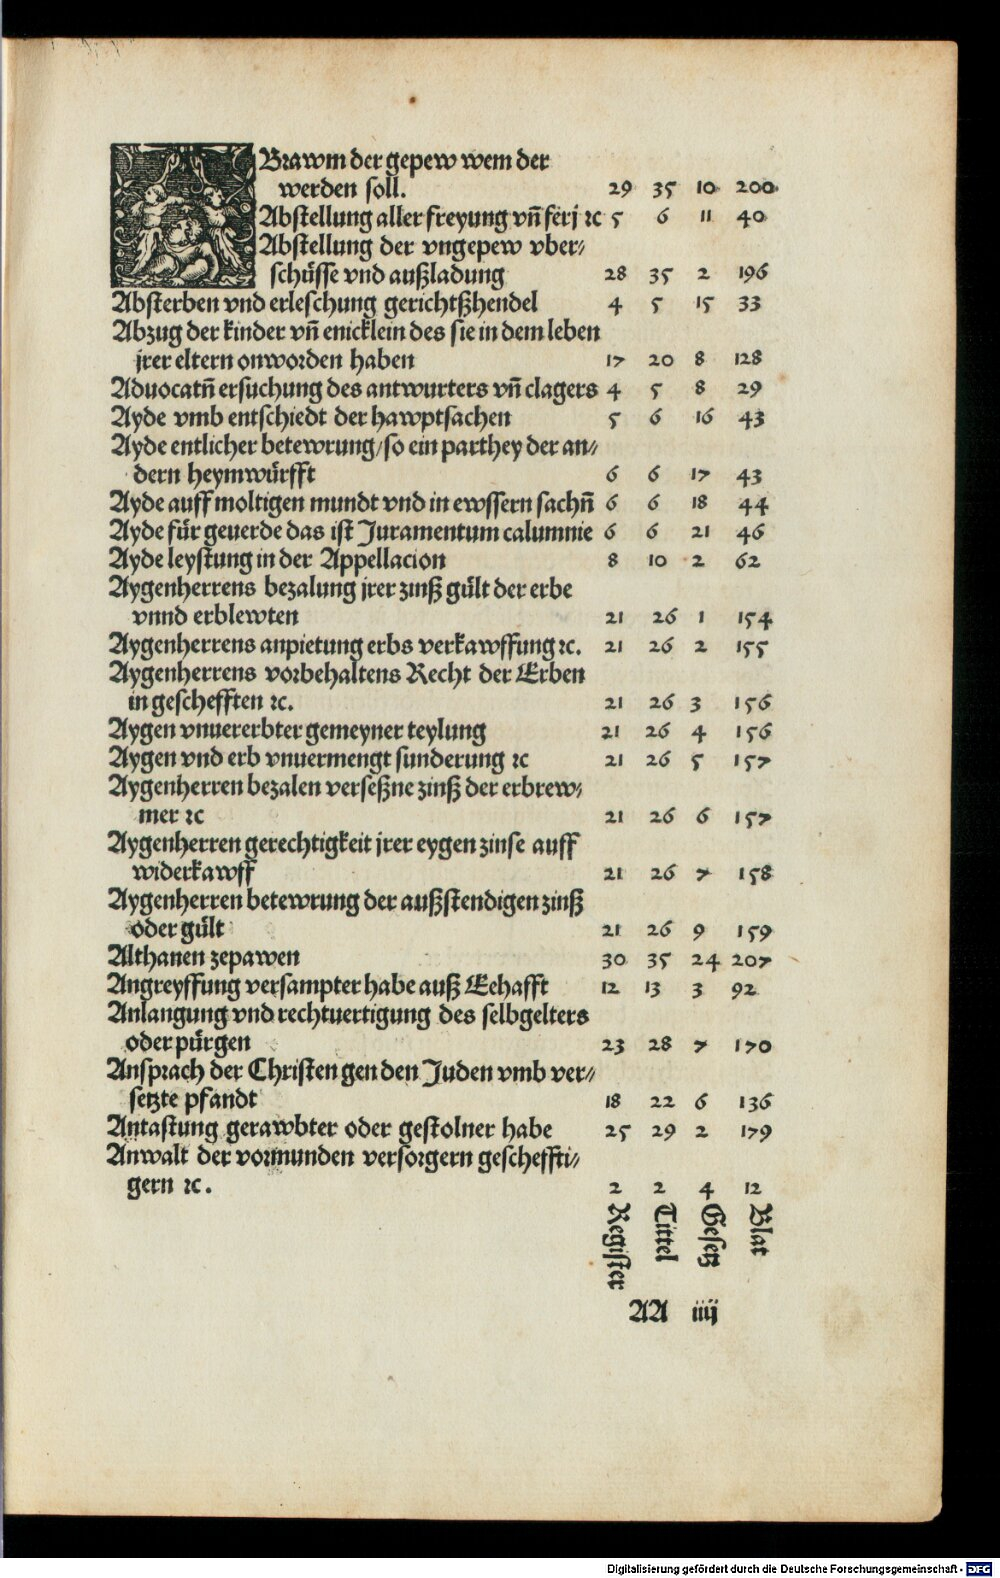 Brawm der gepew wem der
werden soll. 29 35 10 200
Abstellung aller freyung vñ ferj ꝛc 5 6 11 40
Abstellung der vngepew vber⸗
schüsse vnd außladung 28 35 2 196
Absterben vnd erleschung gerichtßhendel 4 5 15 33
Abzug der kinder vñ enicklein des sie in dem leben
jrer eltern onworden haben 17 20 8 128
Aduocatñ ersuchung des antwurters vñ clagers 4 5 8 29
Ayde vmb entschiedt der hawptsachen 5 6 16 43
Ayde entlicher betewrung/so ein parthey der an⸗
dern heymwürfft 6 6 17 43
Ayde auff moltigen mundt vnd in ewssern sachñ 6 6 18 44
Ayde für geuerde das ist Juramentum calumnie 6 6 21 46
Ayde leystung in der Appellacion 8 10 2 62
Aygenherrens bezalung jrer zinß gült der erbe
vnnd erblewten 21 26 1 154
Aygenherrens anpietung erbs verkawffung ꝛc. 21 26 2 155
Aygenherrens vorbehaltens Recht der Erben
in geschefften ꝛc. 21 26 3 156
Aygen vnuererbter gemeyner teylung 21 26 4 156
Aygen vnd erb vnuermengt sunderung ꝛc 21 26 5 157
Aygenherren bezalen verseßne zinß der erbrew⸗
mer ꝛc 21 26 6 157
Aygenherren gerechtigkeit jrer eygen zinse auff
widerkawff 21 26 7 158
Aygenherren betewrung der außstendigen zinß
oder gült 21 26 9 159
Althanen zepawen 30 35 24 207
Angreyffung versampter habe auß Eehafft 12 13 3 92
Anlangung vnd rechtuertigung des selbgelters
oder pürgen 23 28 7 170
Ansprach der Christen gen den Juden vmb ver⸗
setzte pfandt 18 22 6 136
Antastung gerawbter oder gestolner habe 25 29 2 179
Anwalt der vormunden versorgern geschefftі⸗
gern ꝛc. 2 2 4 12
Register Tittel Gesetz Blat
AA iiij
Digitalisierung gefördert durch die Deutsche Forschungsgemeinschaft - DFG